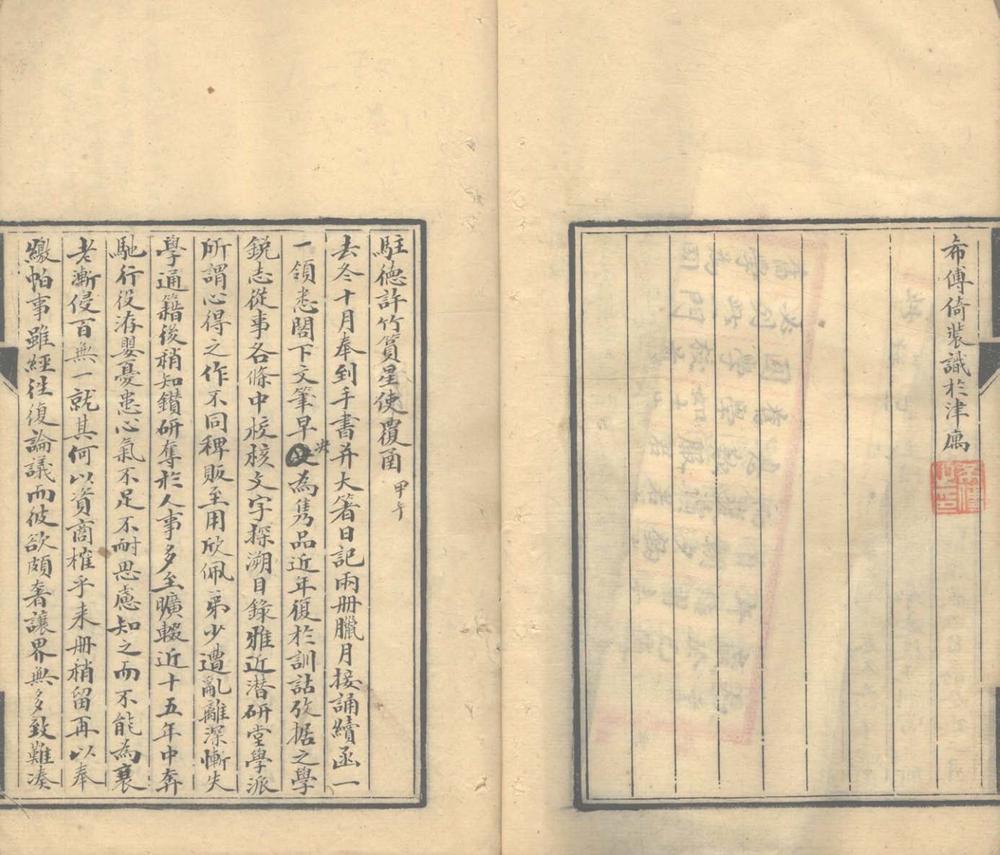 希傅倚裝識於津廡
駐德許竹篔星使覆函 甲午
去冬十月奉到手書并大著日記兩册臘月接誦續函一
一領悉閣下文筆早決為雋品近年復於訓詁攷據之學
銳志從事各條中校核文字探溯目錄雅近潜研堂學派
所謂心得之作不同稗販至用欣佩弟少遭亂離深慚失
學通籍後稍知鑽研奪於人事多至曠輟近十五年中奔
馳行役洊嬰憂患心氣不足不耐思慮知之而不能為衰
老漸侵百無一就其何以資商榷乎来册稍留再以奉
繳帕事雖經往復論議而彼欲頗奢讓界無多致難湊